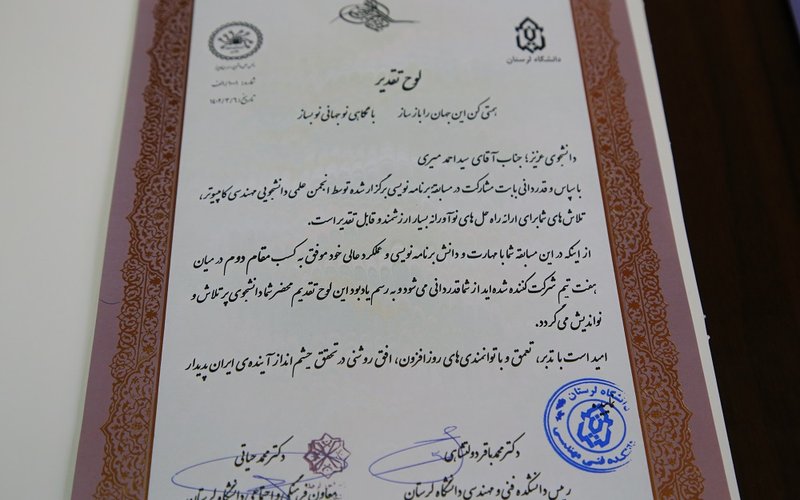 دانشگاه لرستان
تاریخ: ۱۴۰۲/۳/۶
لوح تقدیر
همتی کن این جهان را باز ساز با نگاهی نو جهانی نو بساز
دانشجوی عزیز؛ جناب آقای سید احمد میری
با سپاس و قدردانی بابت مشارکت در مسابقه برنامه نویسی برگزار شده توسط انجمن علمی دانشجویی مهندسی کامپیوتر،
تلاش های شما برای ارائه راه حل های نوآورانه بسیار ارزشمند و قابل تقدیر است.
از اینکه در این مسابقه شما با مهارت و دانش برنامه نویسی و عملکرد عالی خود موفق به کسب مقام دوم در میان
هفت تیم شرکت کننده شده اید از شما قدردانی می شود و به رسم یادبود این لوح تقدیم محضر شما دانشجوی پر تلاش و
نواندیش می گردد.
امید است با تدبر، تعمق و با توانمندی های روزافزون، افق روشنی در تحقق چشم انداز آینده ی ایران پدیدار
دانشگاه لرستان
دانشکده فنی مهندسی
دکتر محمدباقر دولتشاهی دکتر محمد حیاتی
رییس دانشکده فنی و مهندسی دانشگاه لرستان معاون فرهنگی و اجتماعی دانشگاه لرستان